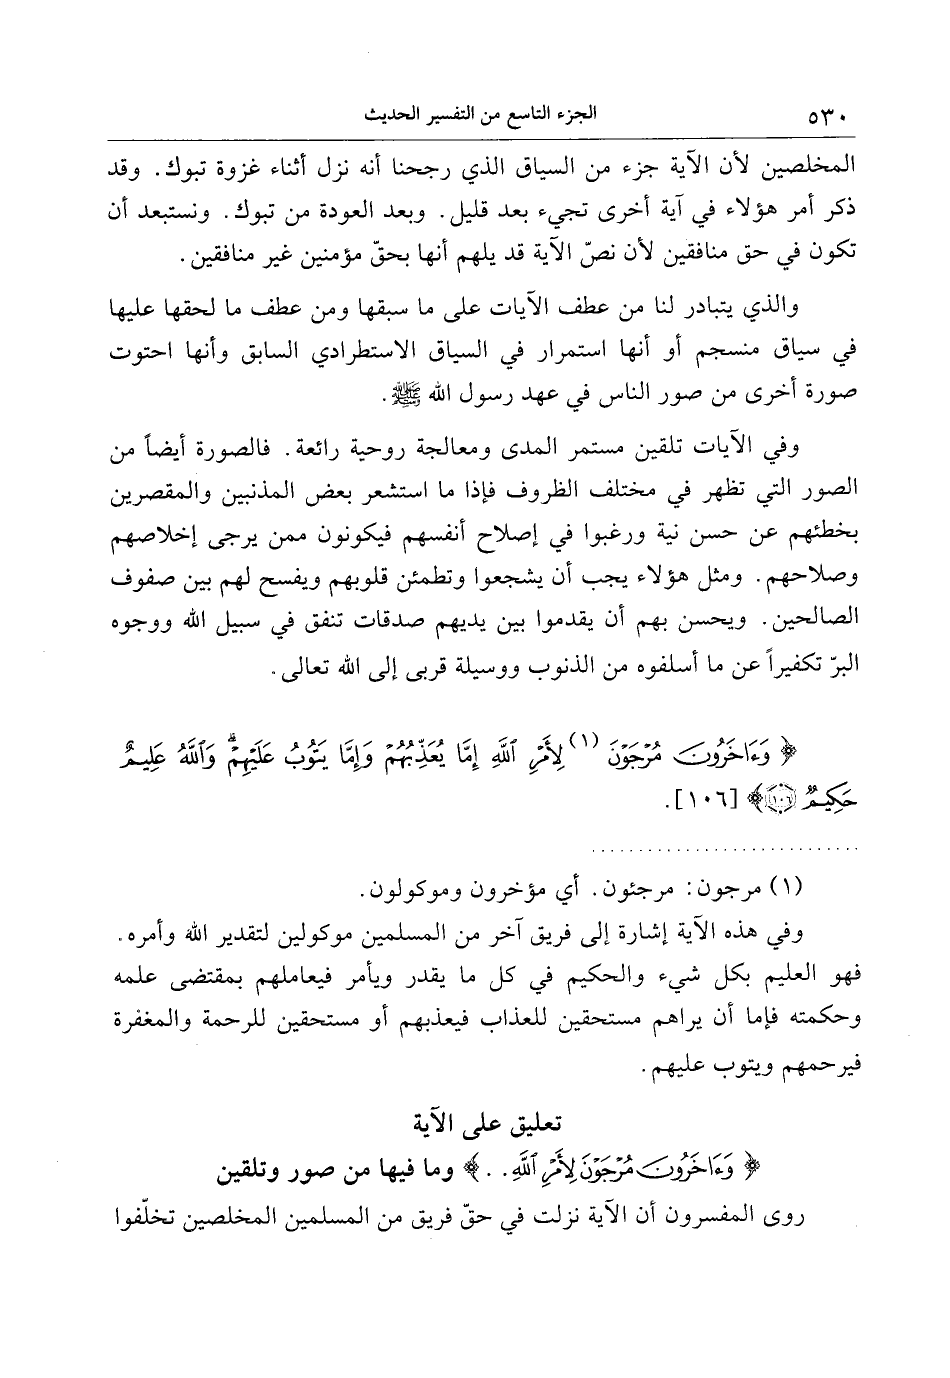 ٥٣٠ الجزء التاسع من التفسير الحديث
المخلصين لأن الآية جزء من السياق الذي رجحنا أنه نزل أثناء غزوة تبوك. وقد
ذكر أمر هؤلاء في آية أخرى تجيء بعد قليل. وبعد العودة من تبوك. ونستبعد أن
تكون في حق منافقين لأن نصّ الآية قد يلهم أنها بحقّ مؤمنين غير منافقين.
والذي يتبادر لنا من عطف الآيات على ما سبقها ومن عطف ما لحقها عليها
في سياق منسجم أو أنها استمرار في السياق الاستطرادي السابق وأنها احتوت
صورة أخرى من صور الناس في عهد رسول الله ﷺ.
وفي الآيات تلقين مستمر المدى ومعالجة روحية رائعة. فالصورة أيضاً من
الصور التي تظهر في مختلف الظروف فإذا ما استشعر بعض المذنبين والمقصرين
بخطئهم عن حسن نية ورغبوا في إصلاح أنفسهم فيكونون ممن يرجى إخلاصهم
وصلاحهم. ومثل هؤلاء يجب أن يشجعوا وتطمئن قلوبهم ويفسح لهم بين صفوف
الصالحين. ويحسن بهم أن يقدموا بين يديهم صدقات تنفق في سبيل الله ووجوه
البرّ تكفيراً عن ما أسلفوه من الذنوب ووسيلة قربى إلى الله تعالى.
﴿ وَءَاخَرُونَ مُرْجَوْنَ (١) لِأَمْرِ ٱللَّهِ إِمَّا يُعَذِّبُهُمْ وَإِمَّا يَتُوبُ عَلَيْهِمْۗ وَٱللَّهُ عَلِيمٌ
حَكِيمٌ ١٠٦﴾ [١٠٦].
(١) مرجون: مرجئون. أي مؤخرون وموكولون.
وفي هذه الآية إشارة إلى فريق آخر من المسلمين موكولين لتقدير الله وأمره.
فهو العليم بكل شيء والحكيم في كل ما يقدر ويأمر فيعاملهم بمقتضى علمه
وحكمته فإما أن يراهم مستحقين للعذاب فيعذبهم أو مستحقين للرحمة والمغفرة
فيرحمهم ويتوب عليهم.
تعليق على الآية
﴿ وَءَاخَرُونَ مُرْجَوْنَ لِأَمْرِ ٱللَّهِ. . ﴾ وما فيها من صور وتلقين
روى المفسرون أن الآية نزلت في حقّ فريق من المسلمين المخلصين تخلّفوا